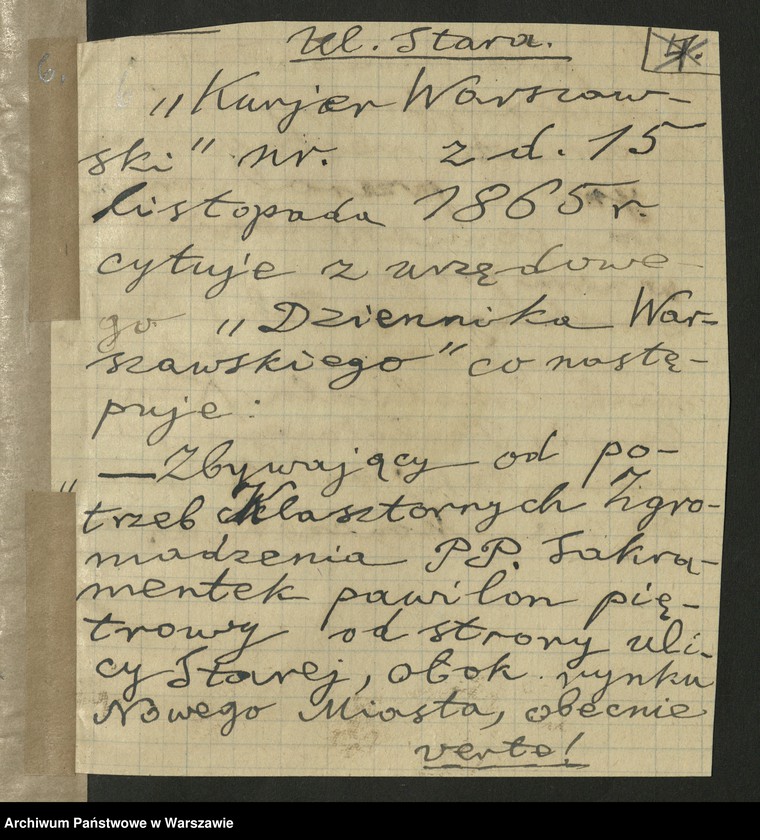 Ul. Stara.
6.
4.
„Kurjer Warszaw-
ski" nr. z d. 15
listopada 1865 r.
cytuje z urzędowe-
go „Dziennika War-
szawskiego" co nastę-
puje:
"—Zbywający od po-
trzeb Klasztornych Zgro-
madzenia PP. Sakra-
mentek pawilon pię-
trowy od strony uli-
cy Starej, obok rynku
Nowego Miasta, obecnie
verte!
Archiwum Państwowe w Warszawie